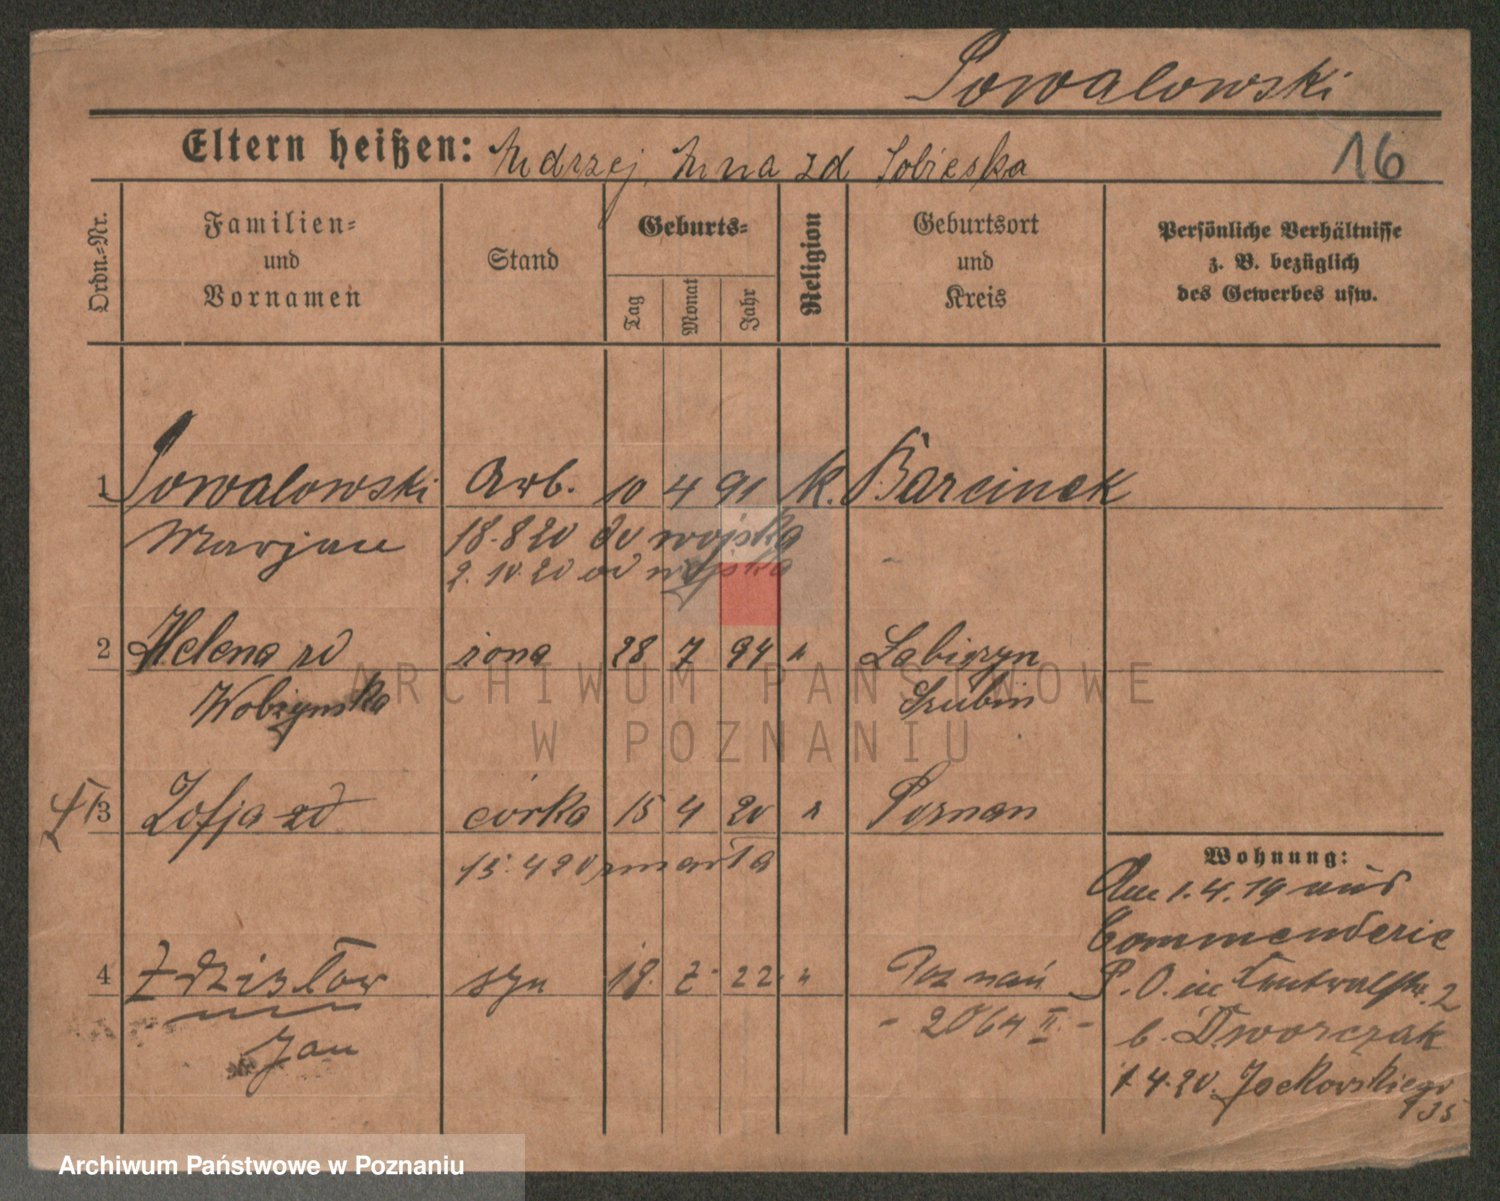 Powalowski
Eltern heißen: Andrzej, Anna zd Sobieska
16
Ordn.-Nr.
Familien-
und
Vornamen
Stand
Geburts-
Tag
Monat
Jahr
Religion
Geburtsort
und
Kreis
Persönliche Verhältnisse
z. B. bezüglich
des Gewerbes usw.
1 Powalowski Arb. 10 4 91 k. Barcinek
Marjan 18.8 20 do wojska
2. 10. 20 od wojska
2 Helena zd żona 28 7 94 " Łabiszyn
Szubin
3 Zofja zd córka 15 4 20 " Poznan
15. 4 20 zmarła
4 Zdzisław syn 18. 7. 22. " Poznań
Jan
- 2064 II. -
Wohnung:
Am 1.4.19 aus
Commenderie
P. O. in 2
b. Dworczak
1.4.20. Jackowskiego
135
ARCHIWUM PAŃSTWOWE
W POZNANIU
Archiwum Państwowe w Poznaniu